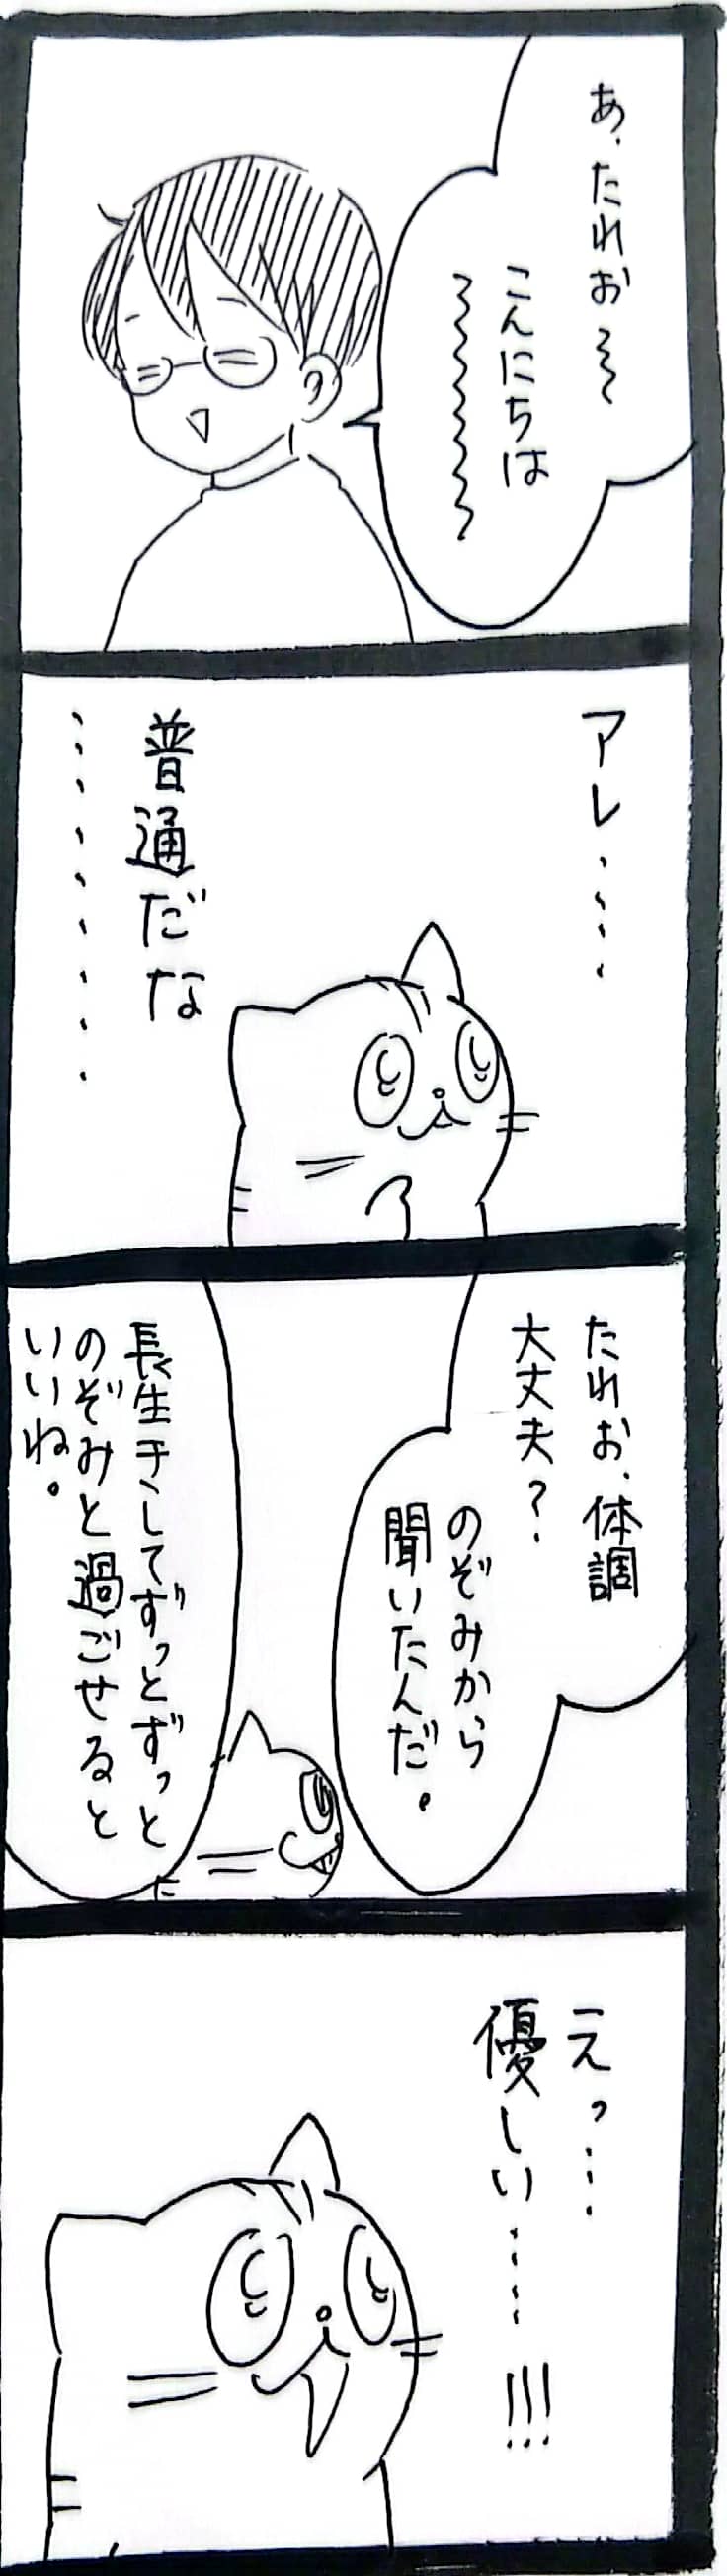 あ、たれお～
こんにちは
～～～～～～
アレ……
普通だな
…………
たれお、体調
大丈夫？
のぞみから
聞いたんだ。
長生きしてずっとずっと
のぞみと過ごせると
いいね。
えっ……
優しい……!!!